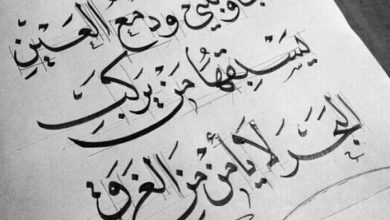 ودمع العينِ
يَسْبِقُهَا مَنْ يَركَبِ
البَحرَ لَا يَأمَنُ مِنَ الغَرَقِ